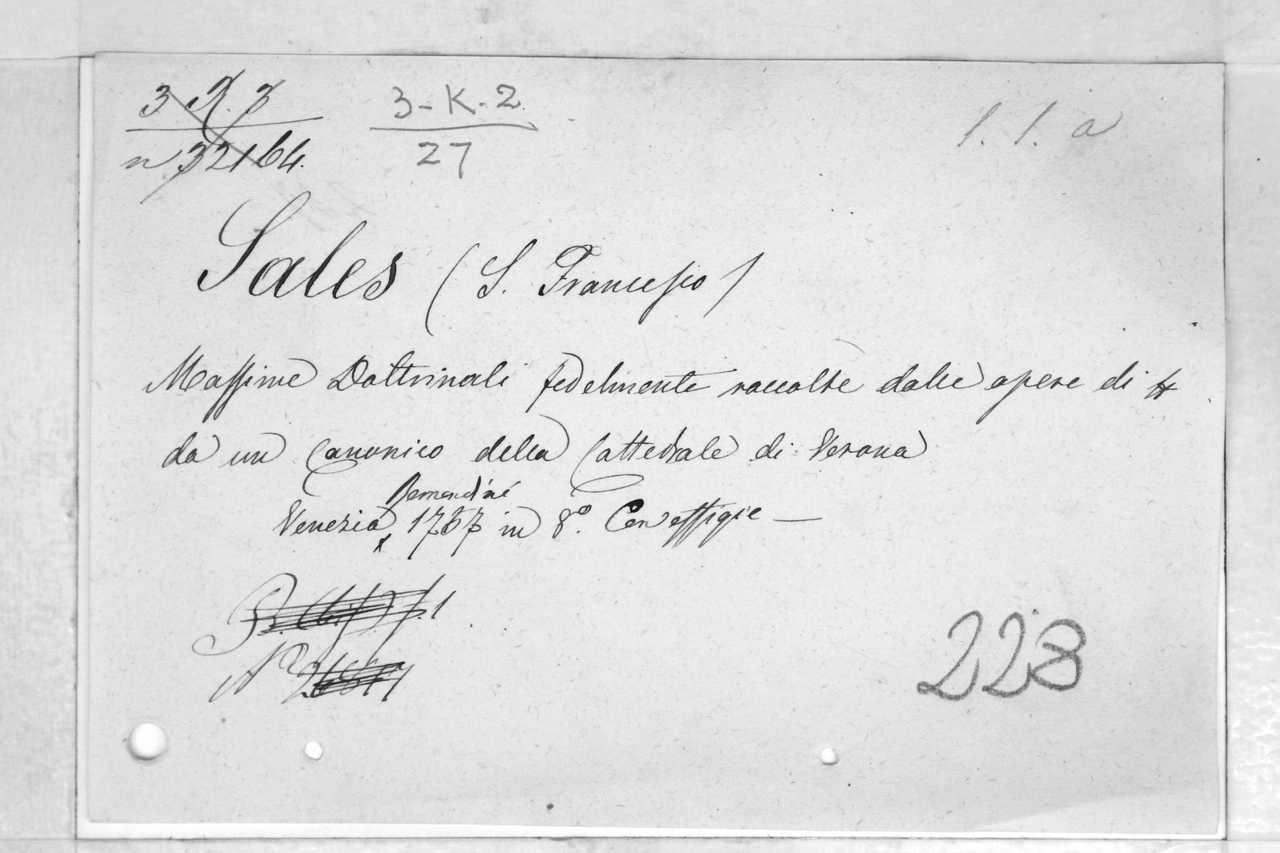 3-K-2
27
1. 1. a
Sales (S. Francesco)
Massime Dottrinali fedelmente raccolte dalle opere di
da un Canonico della Cattedrale di Verona
Remondini
Venezia, 1767 in 8º. Con effigie —
223